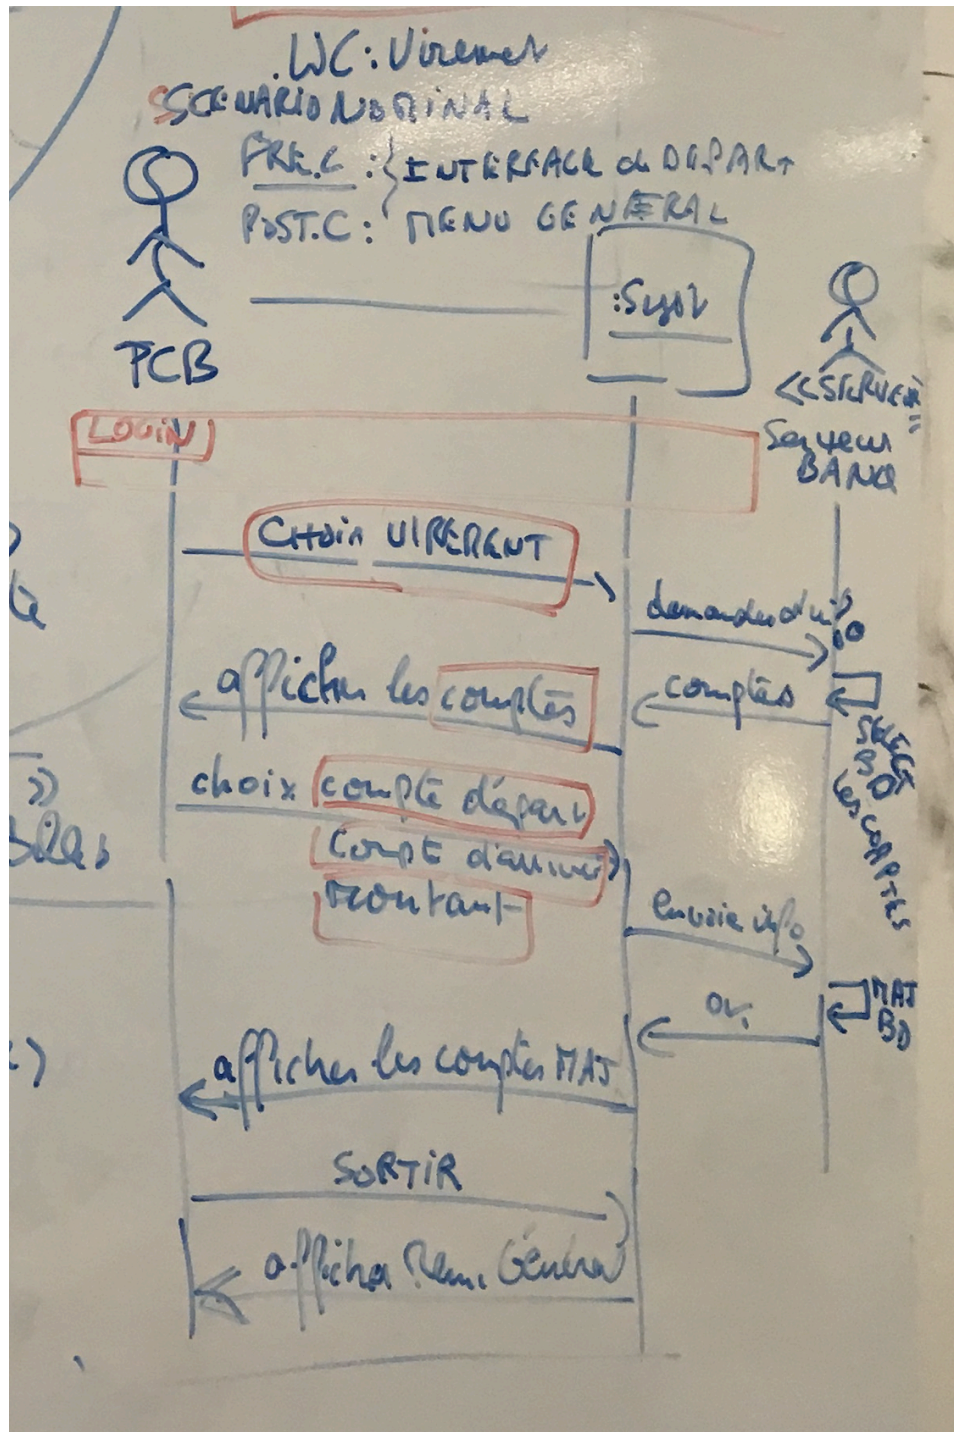 .WC: Virement
SCENARIO NOMINAL
PRE.C : } INTERFACE de DEPART
POST.C : MENU GENERAL
:Syst
PCB
<<SERVEUR
Serveur
BANQ
LOGIN
Choix VIREMENT
demandes d'info
afficher les comptes
comptes
SELECT
BD
les COMPTES
choix compte départ
Compte d'arrivée
montant
envoie info
MAJ
BD
OK
afficher les comptes MAJ
SORTIR
afficher Menu Général